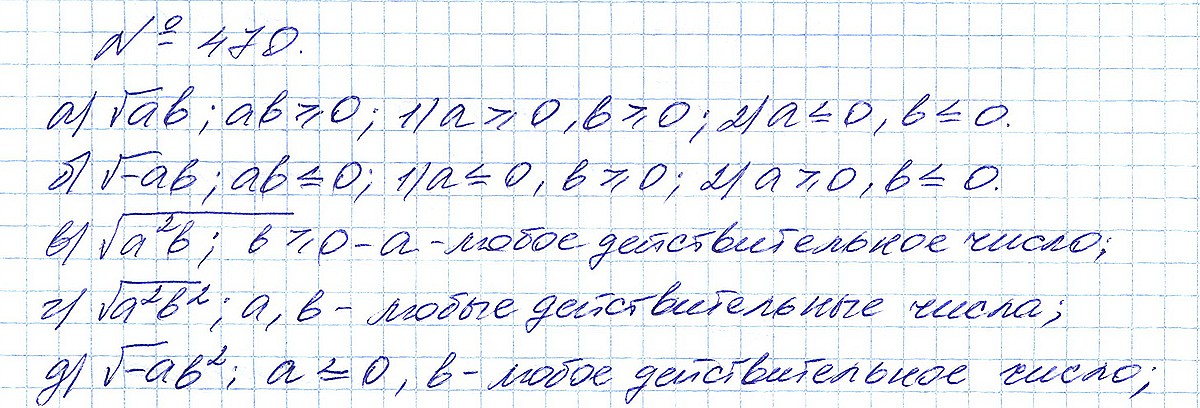 № 470.
а) √ab; ab ≥ 0; 1) a ≥ 0, b ≥ 0; 2) a ≤ 0, b ≤ 0.
б) √-ab; ab ≤ 0; 1) a ≤ 0, b ≥ 0; 2) a ≥ 0, b ≤ 0.
в) √a²b; b ≥ 0 - a - любое действительное число;
г) √a²b²; a, b - любые действительные числа;
д) √-ab²; a ≤ 0, b - любое действительное число;